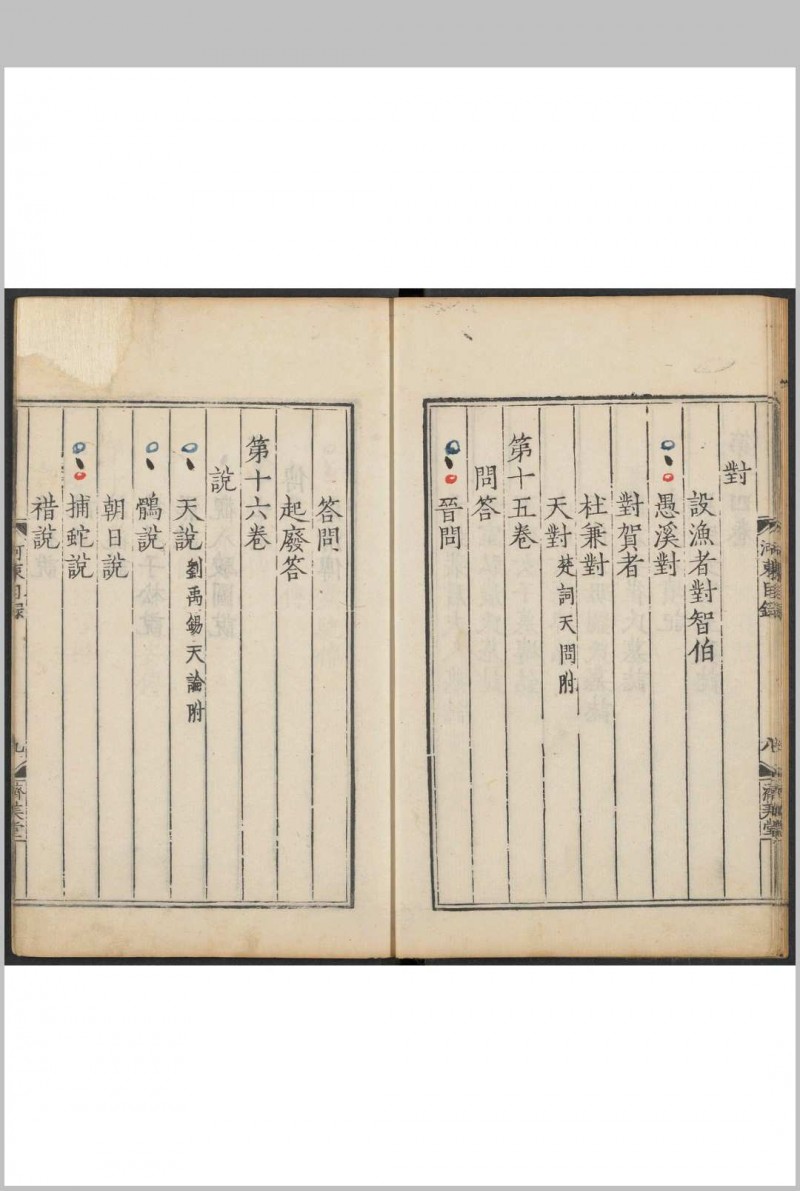 對
設漁者對智伯
愚溪對
對賀者
杜兼對
天對 楚詞天問附
第十五卷
問答
晉問
答問
起廢答
第十六卷
說
天說 劉禹錫天論附
鶻說
朝日說
捕蛇說
䄍說
河東目錄
九
濟美堂
河東目錄
八
濟美堂